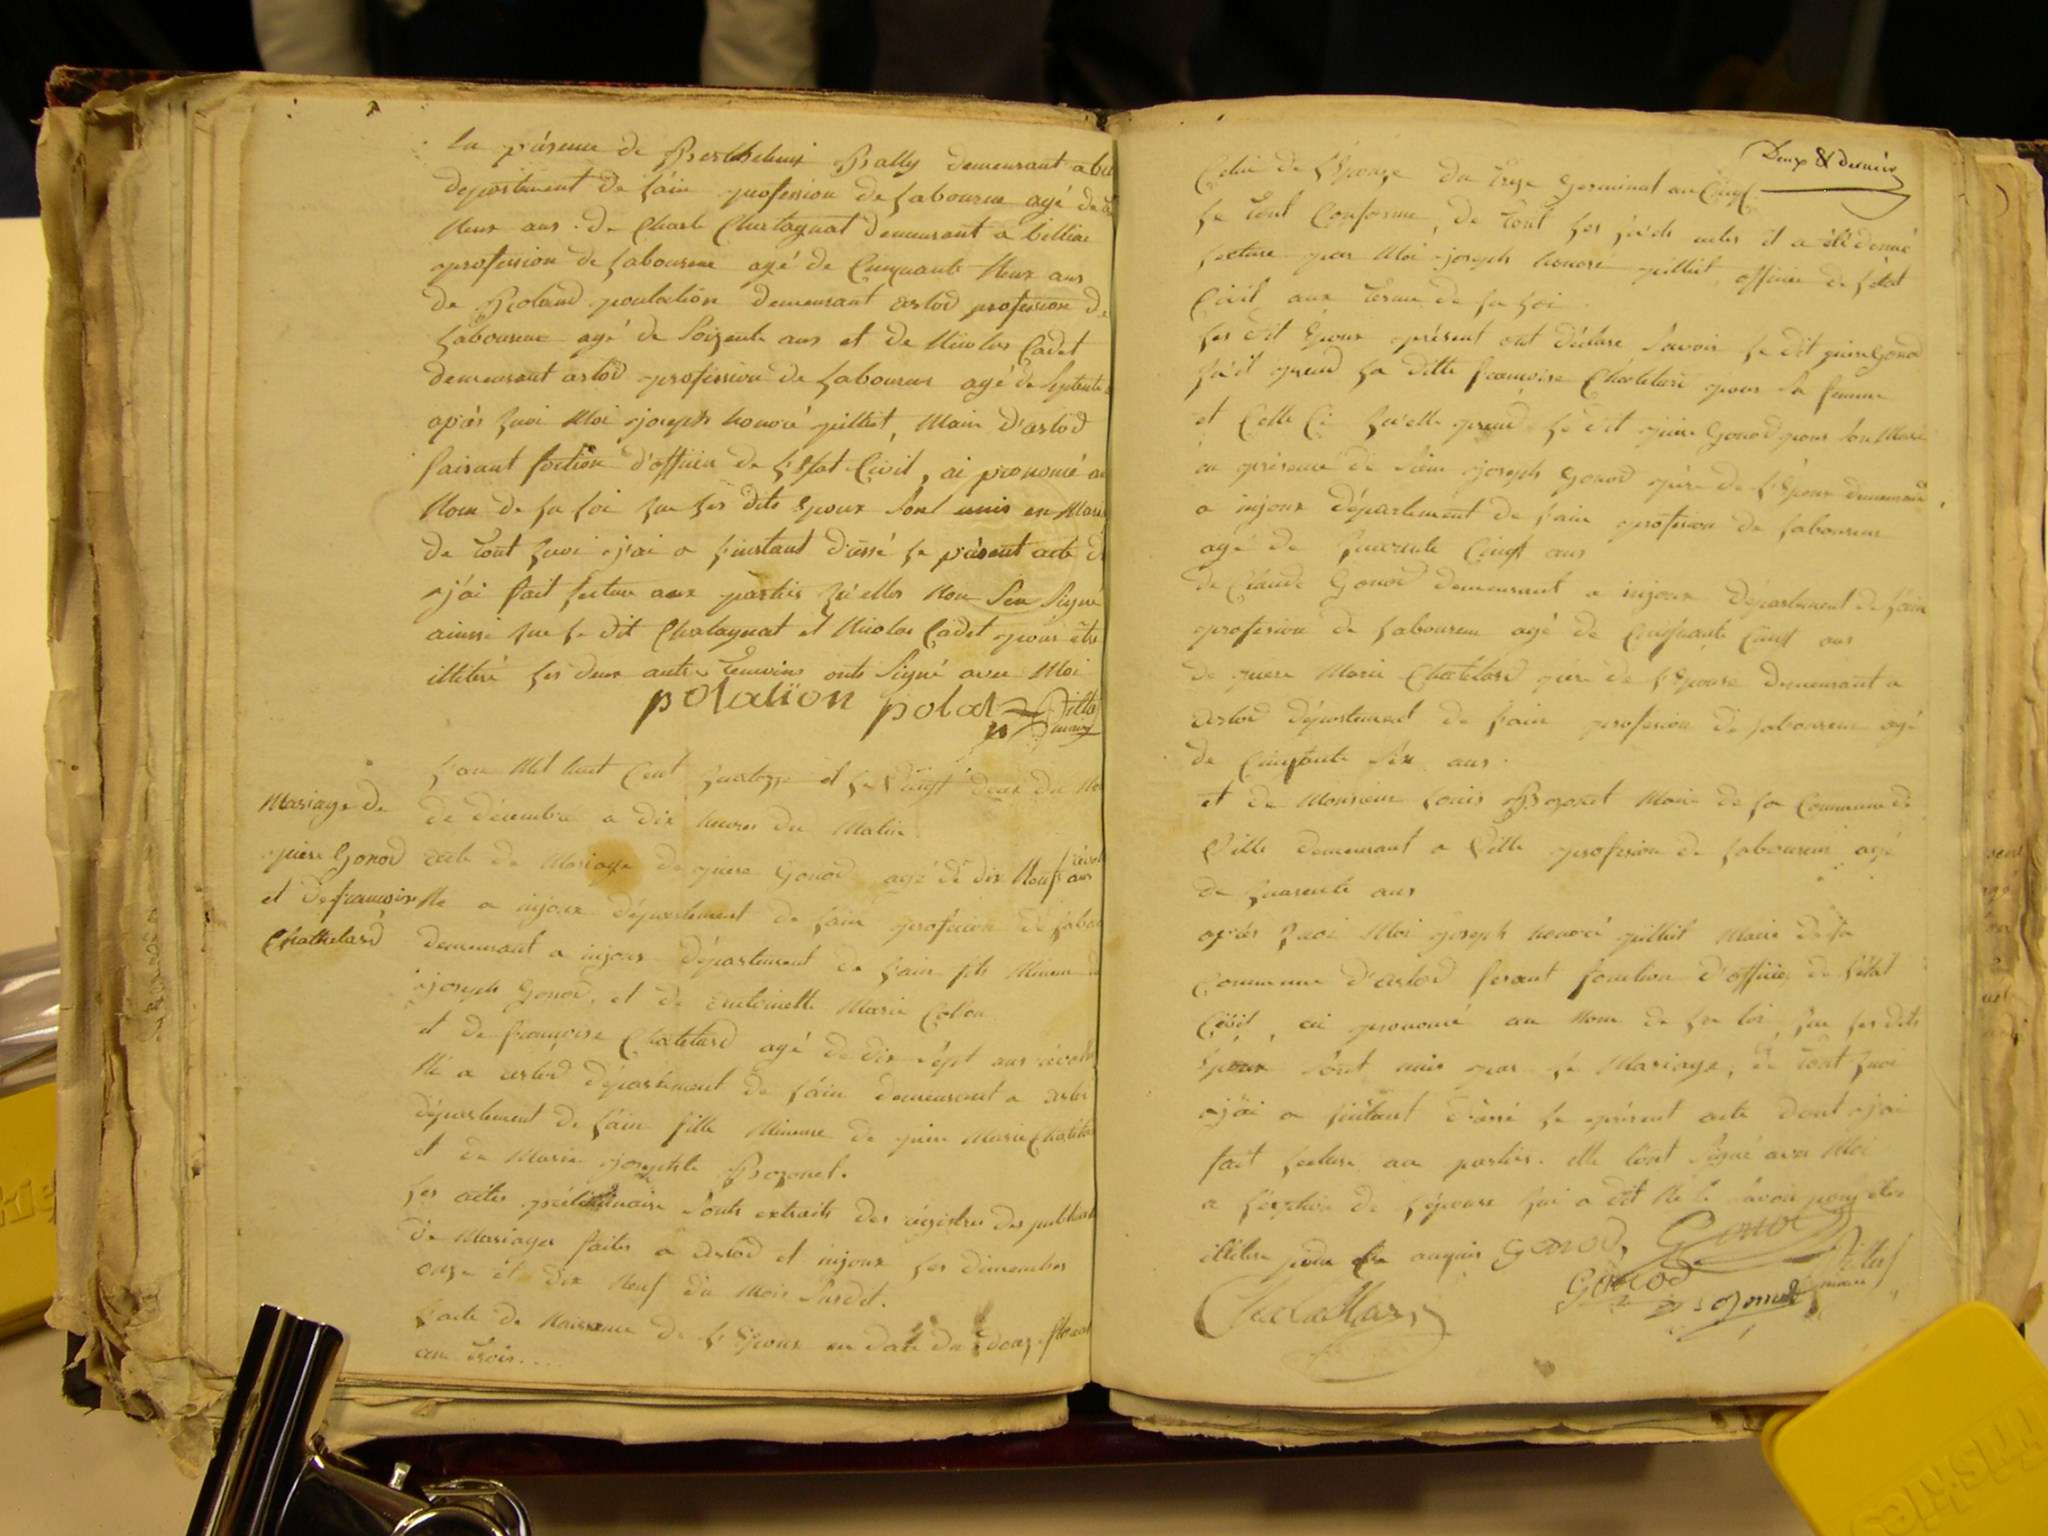 la présence de Berthelmi Bally demeurant a bel
département de l'ain profession de laboureur agé de
Neuf ans. de Charle Chatagnat demeurant a billiat
profession de laboureur agé de Cinquante Neuf ans
de Roland poulation demeurant arlod profession de
laboureur agé de Soizente ans et de Nicolas Cadet
demeurant arlod profession de laboureur agé de Septente
après quoi Moi joseph honoré pilliet, Maire d'arlod
faisant fontion d'officier de l'Etat Civil, ai prononcé au
Nom de la loi que les dits Epoux sont unis en Maria
de tout quoi j'ai a l'instant dressé le présent acte d
j'ai fait lecture aux parties qu'elles Non Seu Signé
ainsi que le dit Chatagnat et Nicolas Cadet pour être
illitéré les deux autre temoins onts Signé avec Moi
polation polat
maire
l'an Mil huit Cent quatorze et le Vingt deux du Mo
de décembre a dix heures du Matin.
Mariage de
piere Gonod
et de françoise
Chathelard
acte de Mariage de piere Gonod agé de dix Neuf ans révol
Né a injoux département de l'ain profession de labou
demeurant a injoux département de l'ain fils Mineur de
joseph Gonod, et de antoinette Marie Collon
et de françoise Chatelard agé de dix sept ans révolu
Né a arlod département de l'ain demeurant a arlod
département de l'ain fille Mineure de piere Marie Chatela
et de Marie josephte Bozonet.
les actes préliminaire sonts extraits des régistres des publicati
de Mariages faites a arlod et injoux les dimenches
onze et dix Neuf du Mois Susdit.
l'acte de Naissance de l'Epoux en date du douze floreal
an trois....
Deux & dernier
Celui de l'Epouse du treze Germinal an Cinq
le tout Conforme, de tout les quels actes il a été donné
lecture par Moi joseph honoré pilliet officier de l'état
Civil aux terme de la loi.
les dit Epoux présent ont déclaré savoir le dit piere Gonod
qu'il prend la ditte françoise Chatelard pour sa femme
et Celle Ci qu'elle prend le dit piere Gonod pour son Mari
en présence de Sieur joseph Gonod père de l'Epoux demeurant
a injoux département de l'ain profession de laboureur
agé de quarente Cinq ans
de Claude Gonod demeurant a injoux département de l'ain
profession de laboureur agé de Cinquante Cinq ans
de piere Marie Chatelard père de l'Epouse demeurant a
arlod département de l'ain profession de laboureur agé
de Cinquante Six ans.
et de Monsieur louis Bozonet Maire de la Commune de
Ville demeurant a Ville profession de laboureur agé
de quarente ans
après quoi Moi joseph honoré pilliet Maire de la
Commune d'arlod fesant fonction d'officier de l'état
Civil, ai prononcé au Nom de la loi, que les dits
Epoux sont unis par le Mariage, de tout quoi
j'ai a l'instant dressé le présent acte dont j'ai
fait lecture au parties. elle l'ont Signé avec Moi
a l'éxption de l'épouse qui a dit Ne le savoir pour être
illitéré Gonod, Gonod
Gonod Bozonnet maire